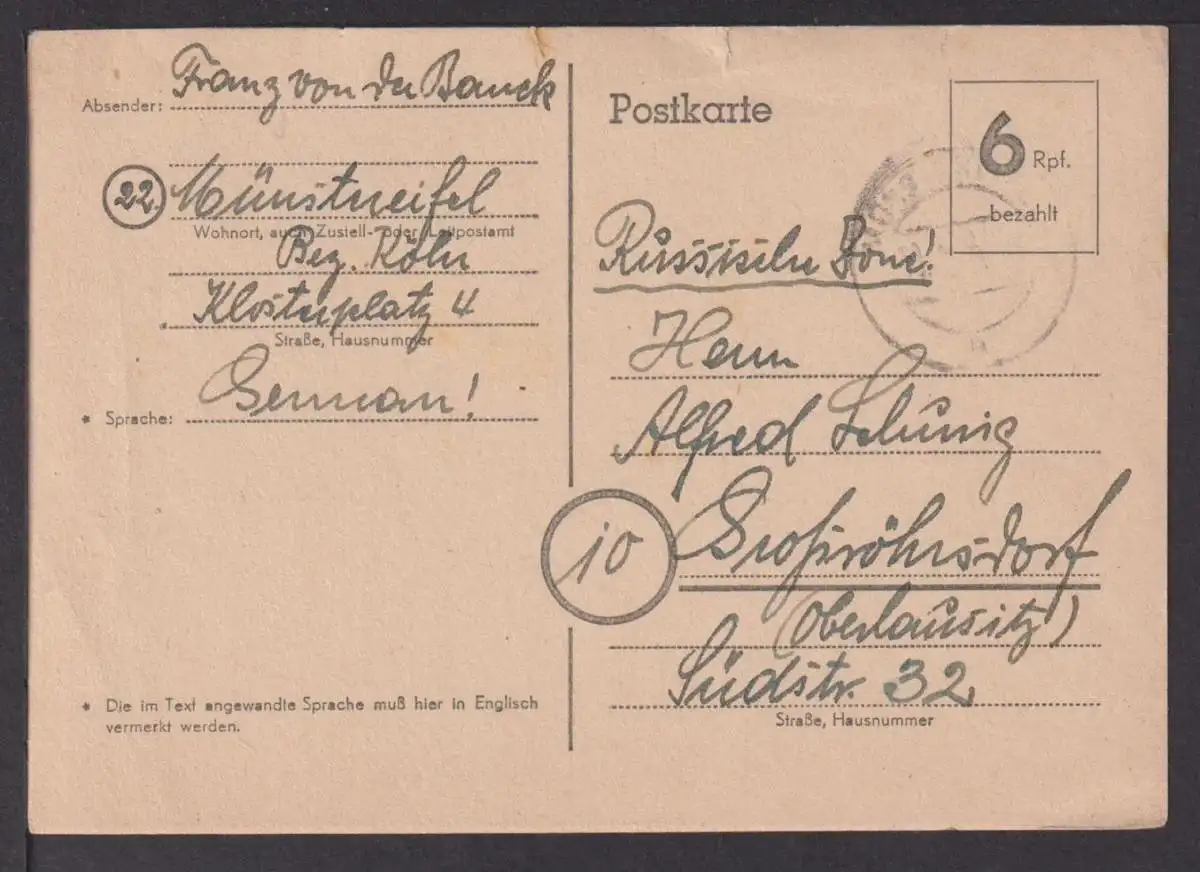 Absender: Franz von der Banck
22. Münstereifel
Wohnort, auch Zustell- oder Leitpostamt
Bez. Köln
Klosterplatz 4
Straße, Hausnummer
* Sprache: German!
* Die im Text angewandte Sprache muß hier in Englisch
vermerkt werden.
Postkarte
6 Rpf.
bezahlt
Russische Zone!
Herrn
Alfred
10 Grossröhrsdorf
(Oberlausitz)
Südstr. 32
Straße, Hausnummer